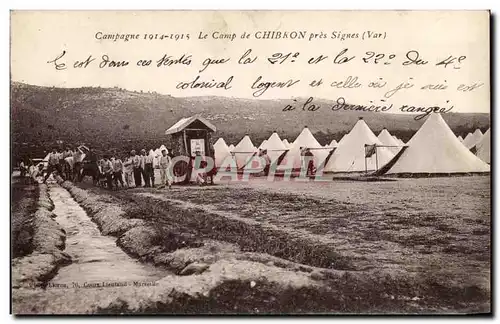 Campagne 1914-1915 Le Camp de CHIBRON près Signes (Var)
C'est dans ces tentes que la 21e et la 22e du 4e
colonial logent et celle où je suis est
à la dernière rangée
CARTHAGE
70, Cours Lieutaud - Marseille